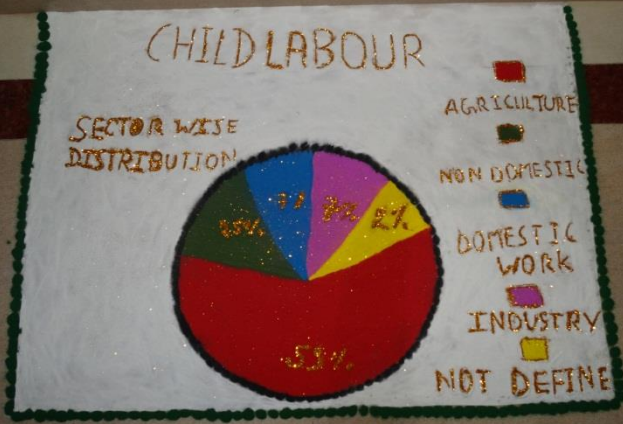 CHILD LABOUR
SECTOR WISE
DISTRIBUTION
AGRICULTURE
NON DOMESTIC
DOMESTIC
WORK
INDUSTRY
NOT DEFINE
7%
2%
59%